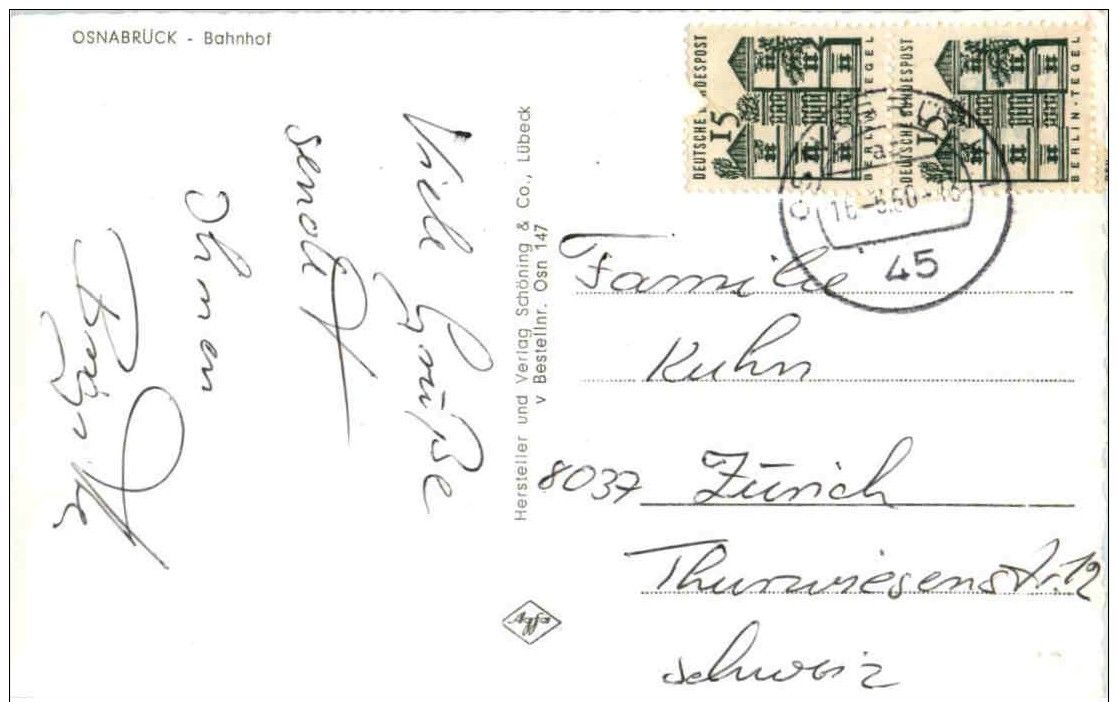 OSNABRÜCK - Bahnhof
Viele Grüße
sendet
Ihnen
Hersteller und Verlag Schöning & Co., Lübeck
v Bestellnr. Osn 147
DEUTSCHE BUNDESPOST
15
BERLIN-TEGEL
DEUTSCHE BUNDESPOST
15
BERLIN-TEGEL
45
Familie
Kuhn
8037 Zürich
Thurwiesenstr. 12
Schweiz